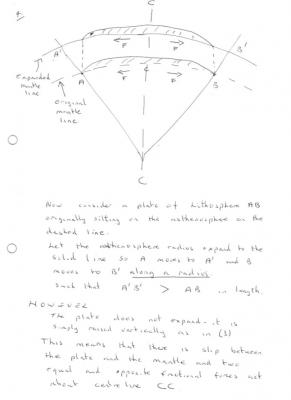 C
A'
B'
F F
expanded
mantle
line
C
F F
original
mantle
line
A
B
C
Now consider a plate of Lithosphere AB
originally sitting on the asthenosphere on the
dashed line.
Let the asthenosphere radius expand to the
solid line so A moves to A' and B
moves to B' along a radius.
such that A'B' > AB in length
HOWEVER
The plate does not expand - it is
simply raised vertically as in (3)
This means that there is slip between
the plate and the mantle and two
equal and opposite frictional forces act
about centreline CC